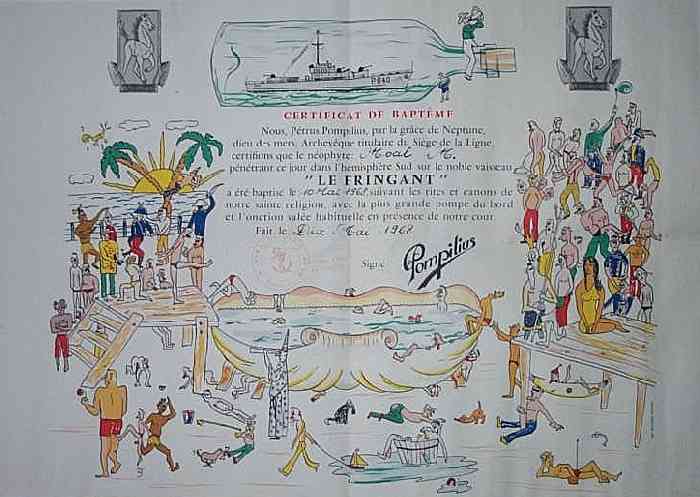 CERTIFICAT DE BAPTÊME
Nous, Pétrus Pompilius, par la grâce de Neptune,
dieu des mers, Archevêque titulaire du Siège de la Ligne,
certifions que le néophyte: Moal M.
pénétrant ce jour dans l'hémisphère Sud sur le noble vaisseau
" LE FRINGANT "
a été baptisé le 10 Mai 1968, suivant les rites et canons de
notre sainte religion, avec la plus grande pompe du bord
et l'onction salée habituelle en présence de notre cour.
Fait le Dix Mai 1968
Signé Pompilius